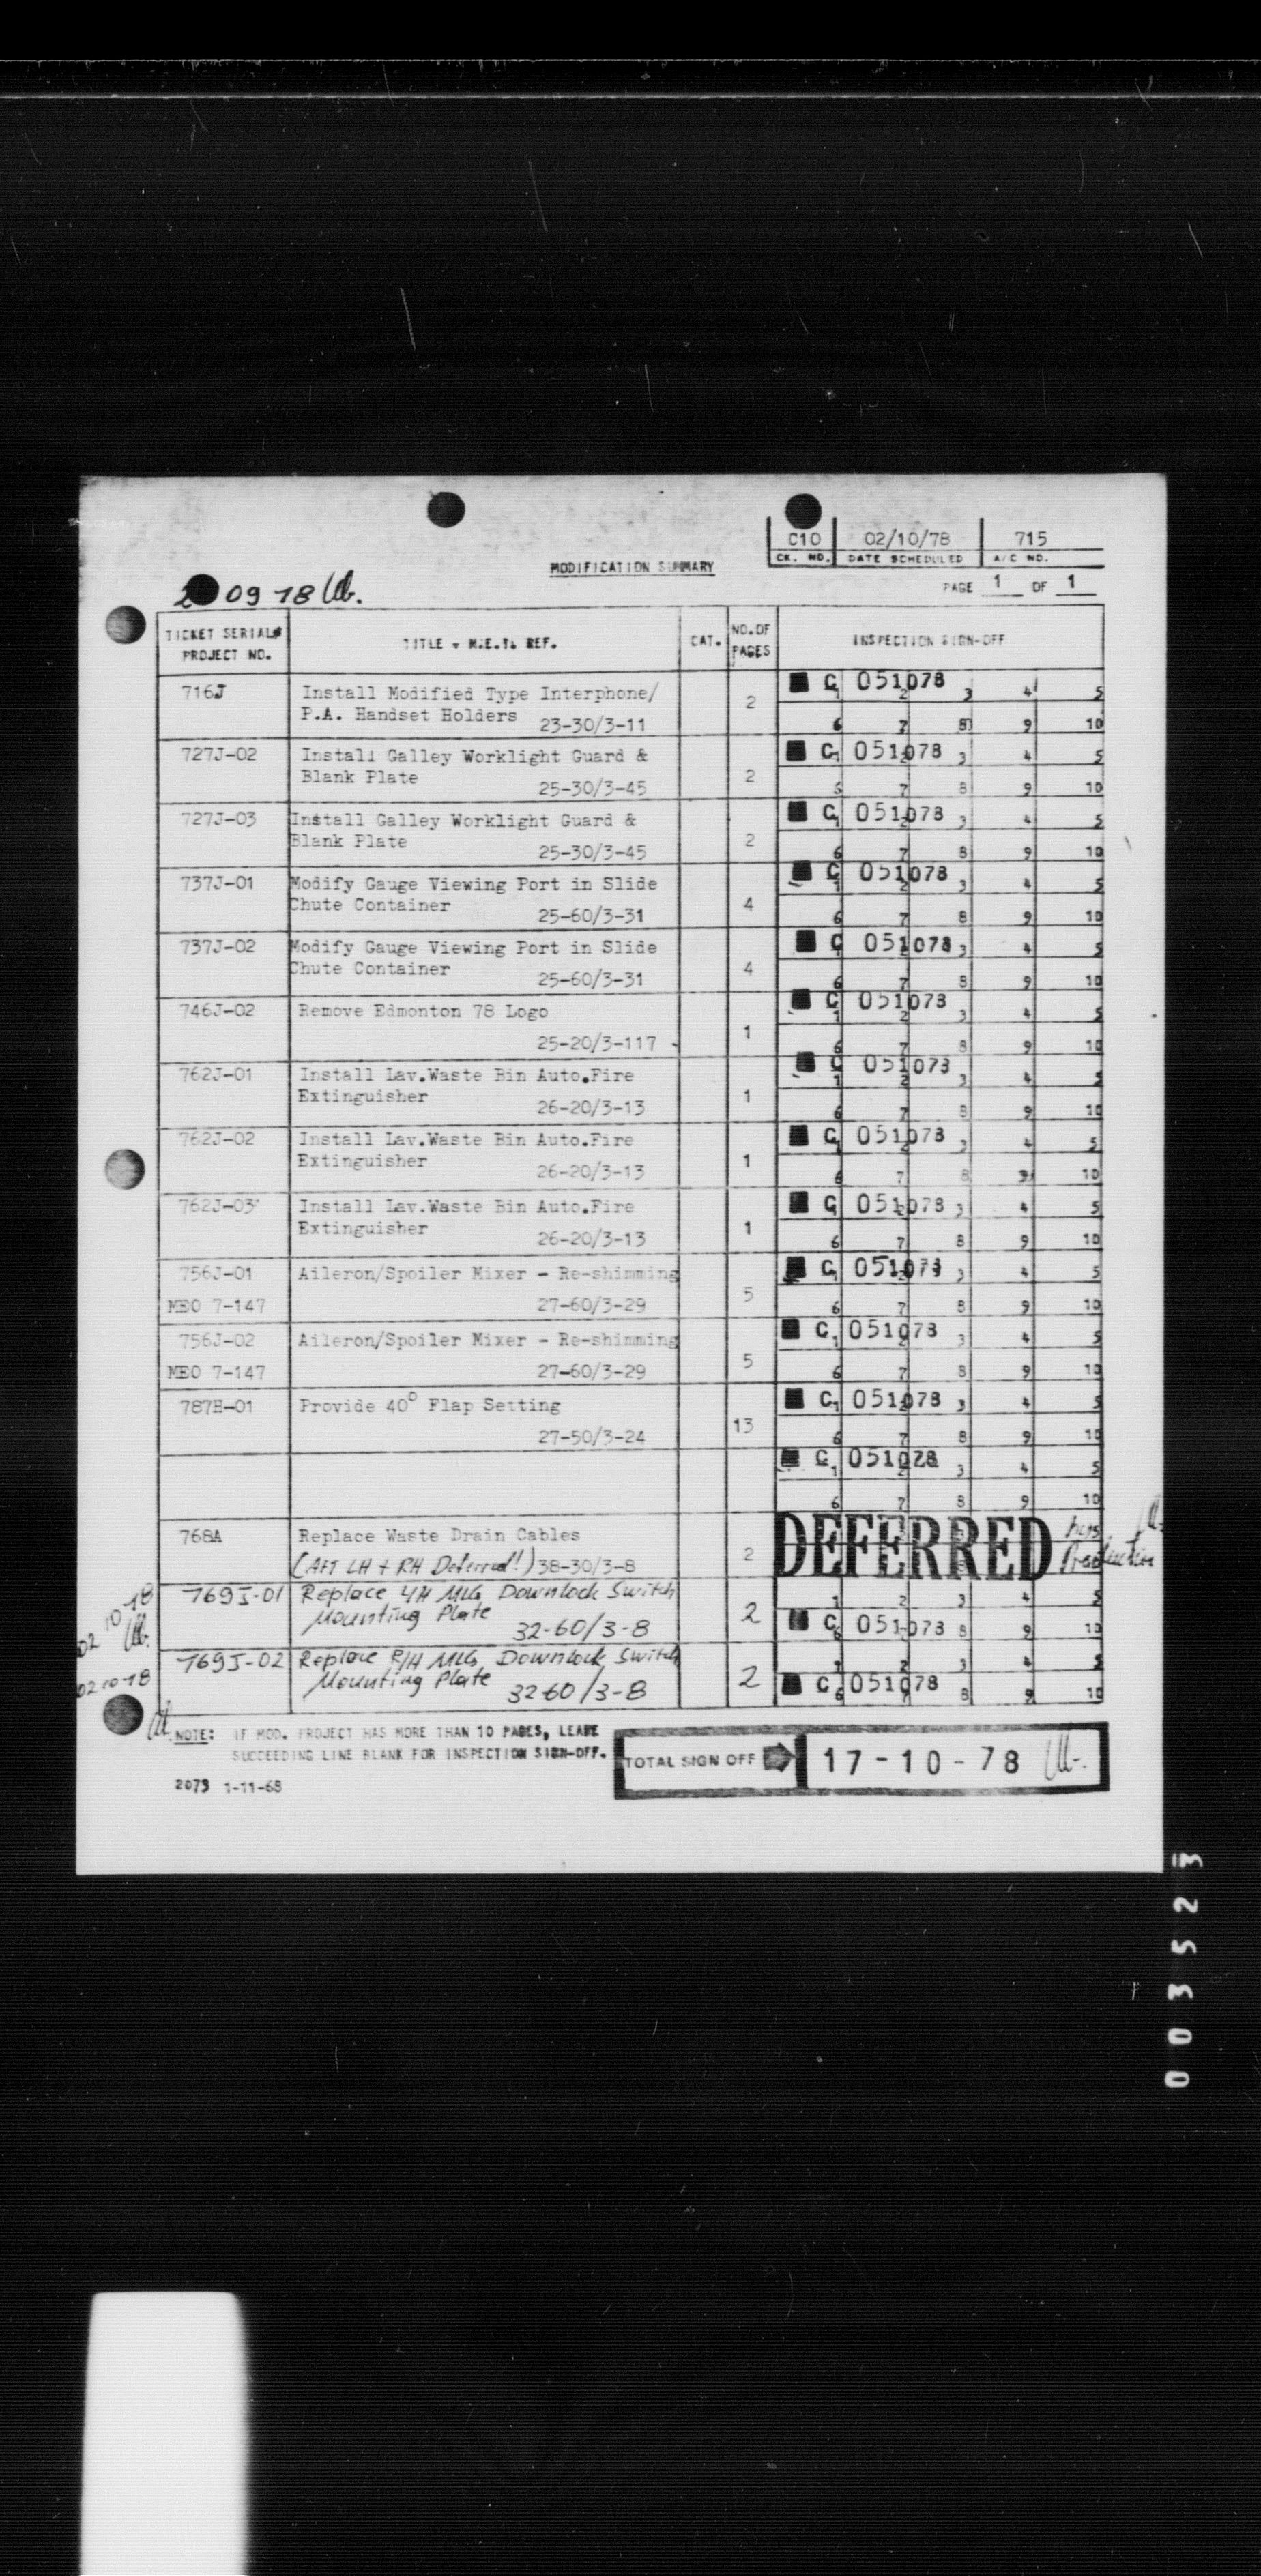 C10 02/10/78 715
CK. NO. DATE SCHEDULED A/C NO.
MODIFICATION SUMMARY
PAGE 1 OF 1
09 78
TICKET SERIAL# PROJECT NO. TITLE + M.E.T. REF. CAT. NO.OF PAGES INSPECTION SIGN-OFF
716J Install Modified Type Interphone/ 2 C 051078 1 2 3 4 5
P.A. Handset Holders 23-30/3-11 6 7 8 9 10
727J-02 Install Galley Worklight Guard & 2 C 051078 1 2 3 4 5
Blank Plate 25-30/3-45 6 7 8 9 10
727J-03 Install Galley Worklight Guard & 2 C 051078 1 2 3 4 5
Blank Plate 25-30/3-45 6 7 8 9 10
737J-01 Modify Gauge Viewing Port in Slide 4 C 051078 1 2 3 4 5
Chute Container 25-60/3-31 6 7 8 9 10
737J-02 Modify Gauge Viewing Port in Slide 4 C 051078 1 2 3 4 5
Chute Container 25-60/3-31 6 7 8 9 10
746J-02 Remove Edmonton 78 Logo 1 C 051078 1 2 3 4 5
25-20/3-117 6 7 8 9 10
762J-01 Install Lav.Waste Bin Auto.Fire 1 C 051078 1 2 3 4 5
Extinguisher 26-20/3-13 6 7 8 9 10
762J-02 Install Lav.Waste Bin Auto.Fire 1 C 051078 1 2 3 4 5
Extinguisher 26-20/3-13 6 7 8 9 10
762J-03 Install Lav.Waste Bin Auto.Fire 1 C 051078 1 2 3 4 5
Extinguisher 26-20/3-13 6 7 8 9 10
756J-01 Aileron/Spoiler Mixer - Re-shimming 5 C 051078 1 2 3 4 5
MEO 7-147 27-60/3-29 6 7 8 9 10
756J-02 Aileron/Spoiler Mixer - Re-shimming 5 C 051078 1 2 3 4 5
MEO 7-147 27-60/3-29 6 7 8 9 10
787H-01 Provide 40° Flap Setting 13 C 051078 1 2 3 4 5
27-50/3-24 6 7 8 9 10
C 051078 1 2 3 4 5
6 7 8 9 10
768A Replace Waste Drain Cables 2 DEFERRED
(AFT LH + RH Deferred!) 38-30/3-8 Production
769J-01 Replace L/H MLG Downlock Switch 2 1 2 3 4 5
Mounting Plate 32-60/3-8 C 051078 6 7 8 9 10
02 10 78
769J-02 Replace R/H MLG Downlock Switch 2 1 2 3 4 5
02 10 78 Mounting Plate 3260/3-8 C 051078 6 7 8 9 10
NOTE: IF MOD. PROJECT HAS MORE THAN 10 PAGES, LEAVE
SUCCEEDING LINE BLANK FOR INSPECTION SIGN-OFF.
TOTAL SIGN OFF 17-10-78
2073 1-11-68
003523